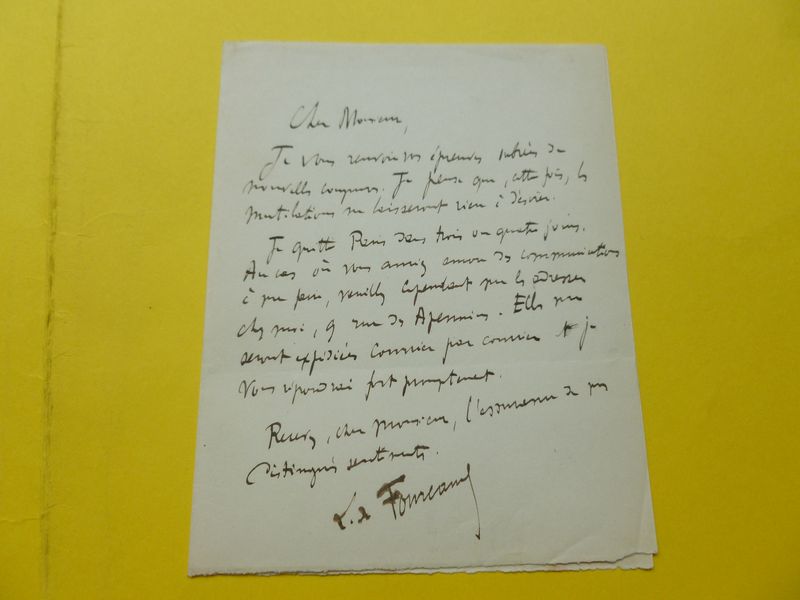 Cher Monsieur,
Je vous renvoie vos épreuves sabrées de
nouvelles coupures. Je pense que, cette fois, les
mutilations ne laisseront rien à désirer.
Je quitte Paris dans trois ou quatre jours.
Au cas où vous auriez encore des communications
à me faire, veuillez cependant me les adresser
chez moi, 9 rue des Apennins. Elles me
seront expédiées courrier par courrier et je
vous répondrai fort promptement.
Recevez, cher monsieur, l'assurance de mes
distingués sentiments.
L. de Fourcaud